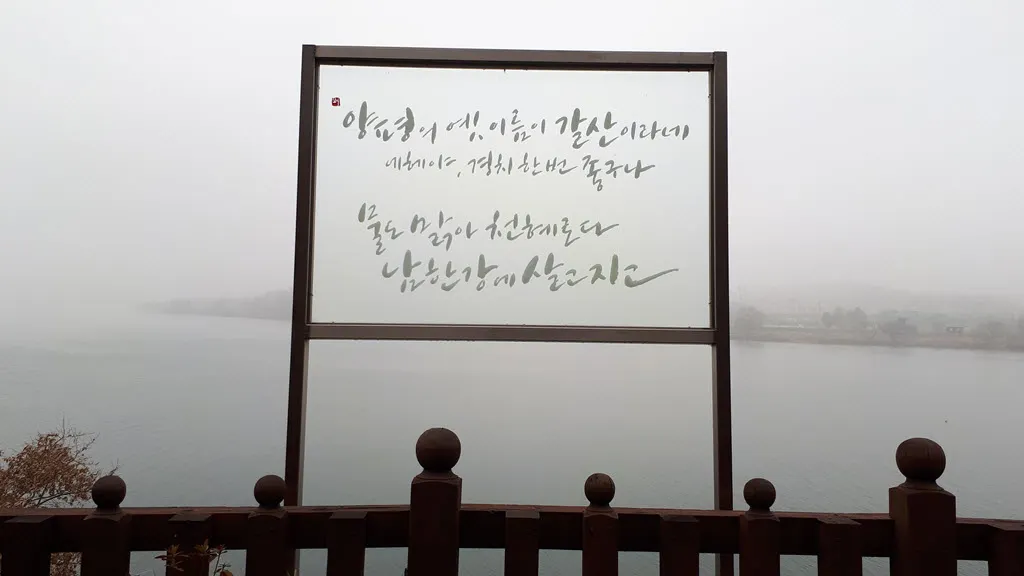 양평의 옛 이름이 갈산이라네
에헤이야, 경치 한번 좋구나
물도 맑아 천혜로다
남한강에 살고지고